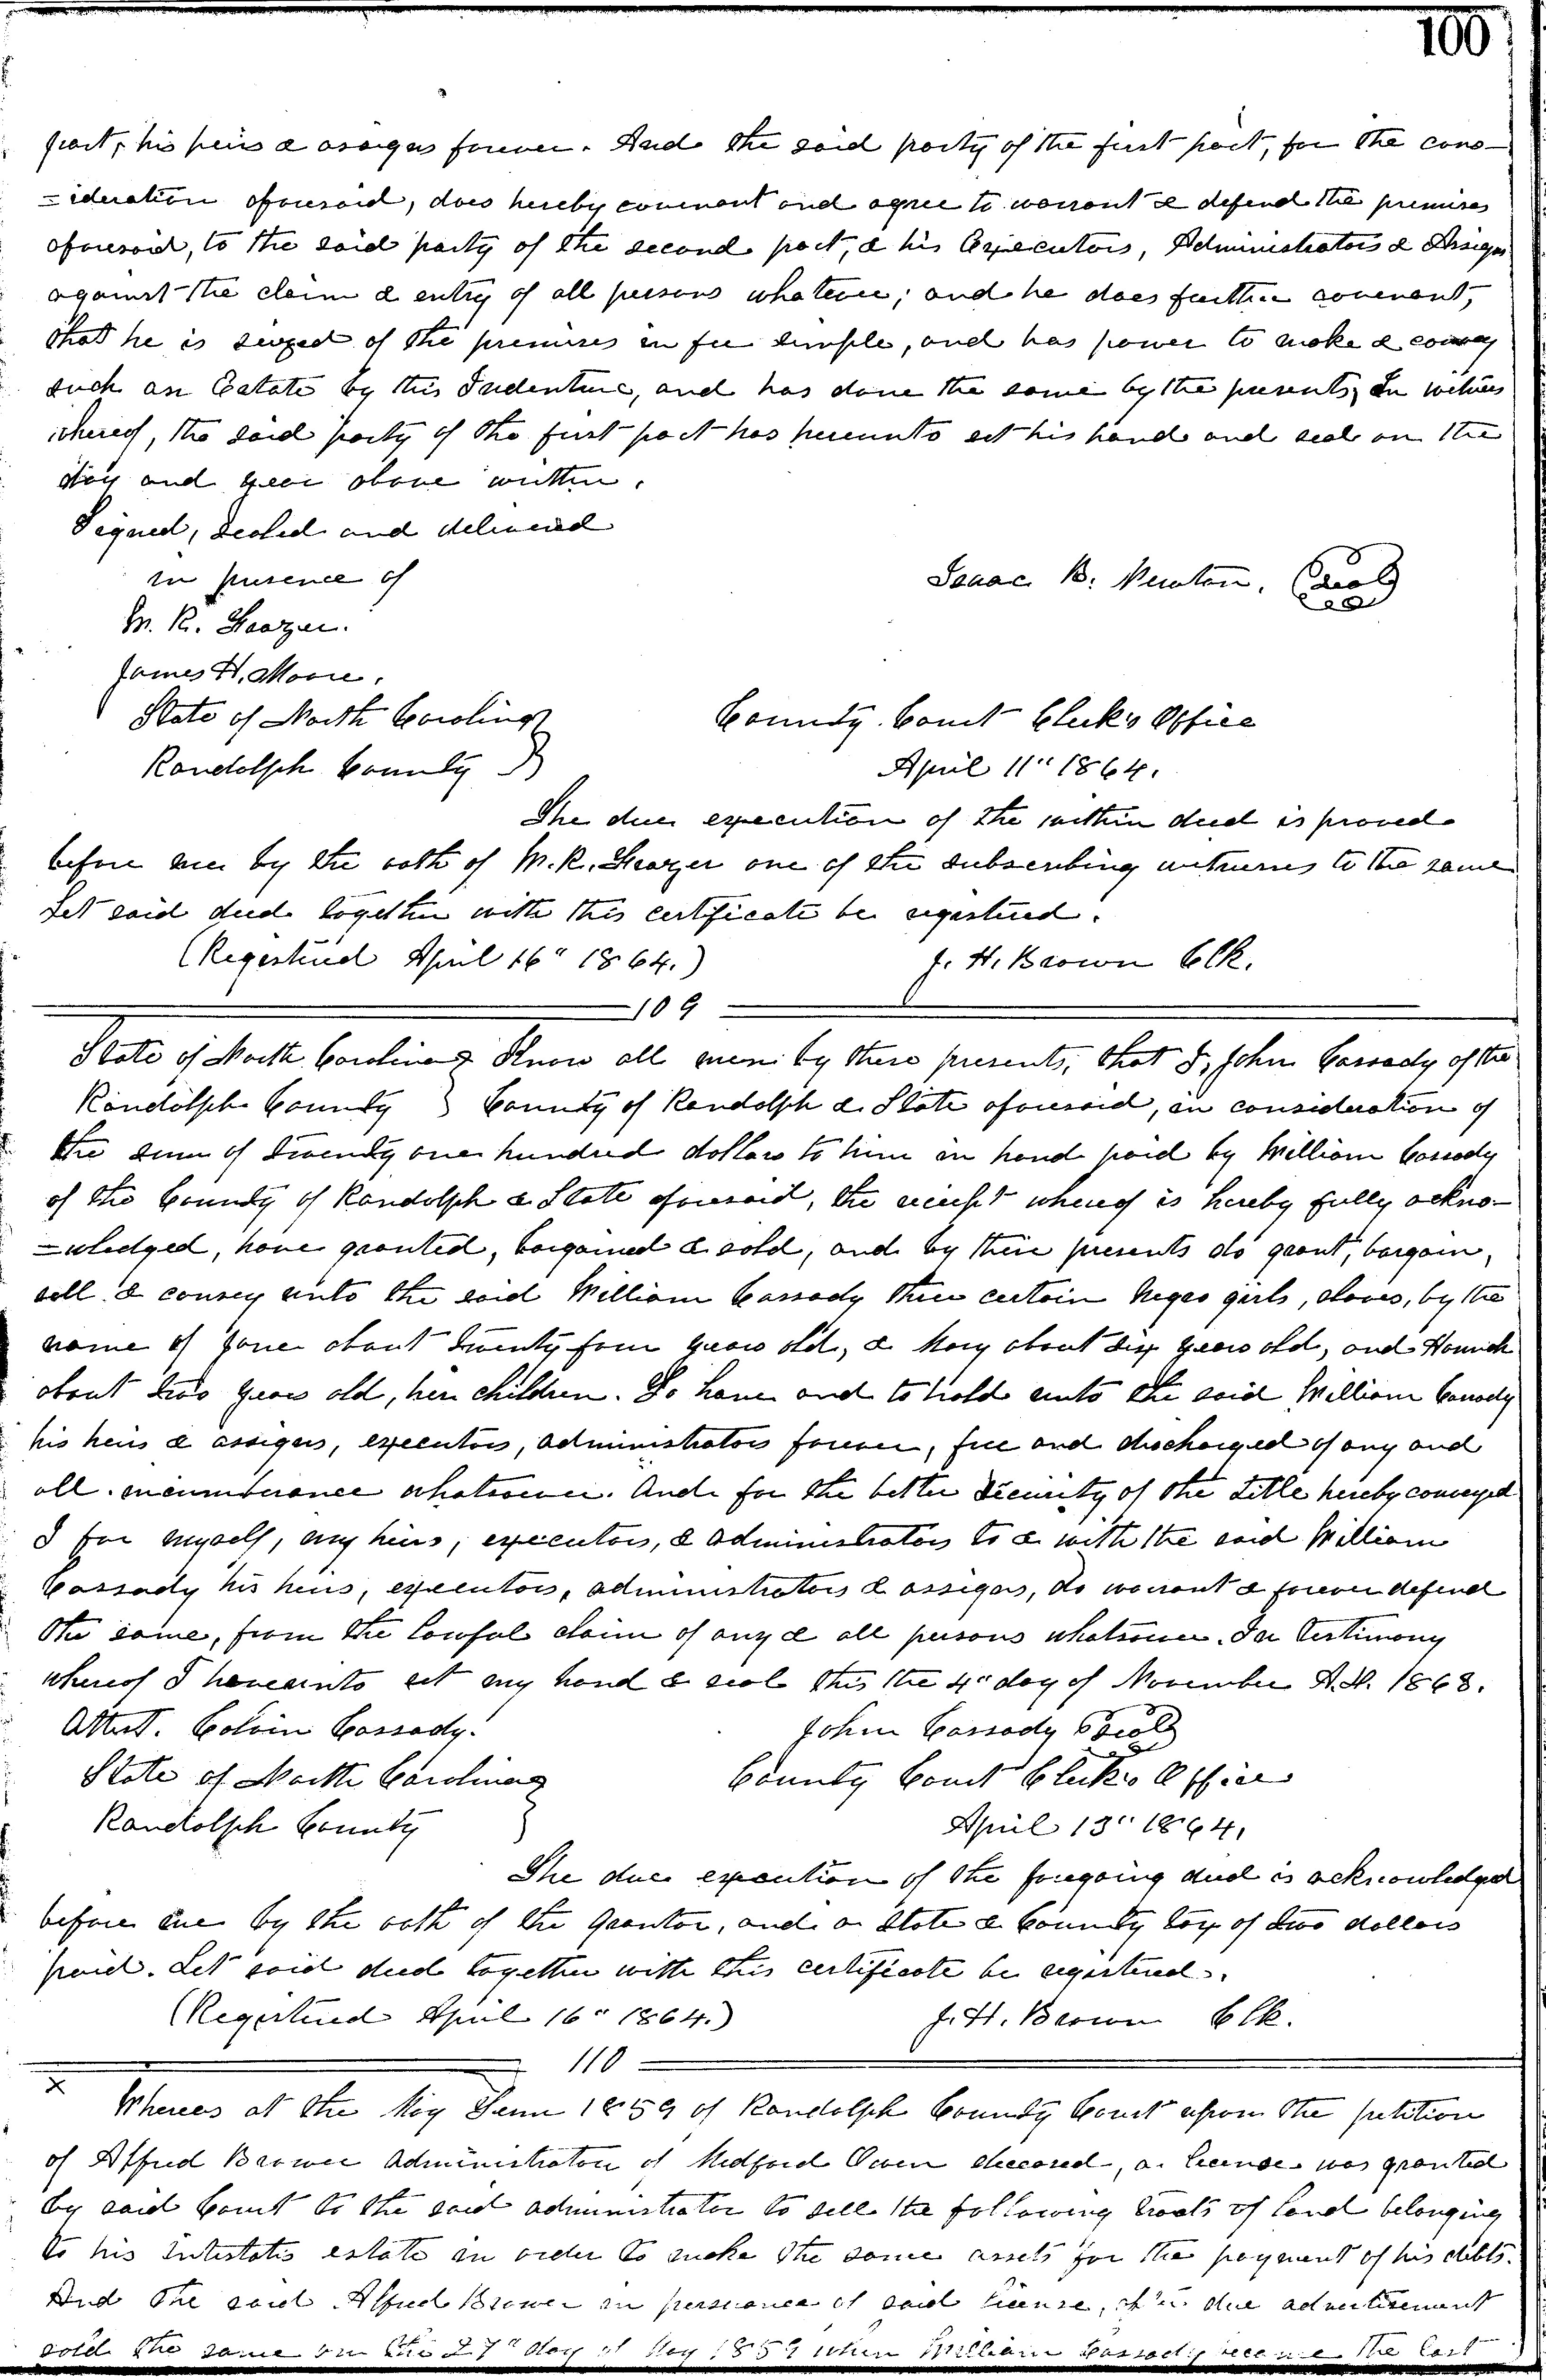 100
part, his heirs & assigns forever. And the said party of the first part, for the cons-
=ideration aforesaid, does hereby covenant and agree to warrant & defend the premises
aforesaid, to the said party of the second part, & his Executors, Administrators & Assigns
against the claim & entry of all persons whatever; and he does further covenant,
that he is seized of the premises in fee simple, and has power to make & convey
such an Estate by this Indenture, and has done the same by the presents, In witness
whereof, the said party of the first part has hereunto set his hand and seal on the
day and year above written.
Signed, Sealed and delivered
in presence of
Isaac B. Newton. Seal
M. R.
James H. Moore.
State of North Carolina
County Court Clerk's Office
Randolph County
April 11" 1864.
The due execution of the within deed is proved
before me by the oath of M. R. one of the subscribing witnesses to the same
Let said deed together with this certificate be registered.
(Registered April 16" 1864.) J. H. Brown Clk.
109
State of North Carolina Know all men by these presents, that I, John Cassady of the
Randolph County } County of Randolph & State aforesaid, in consideration of
the sum of twenty one hundred dollars to him in hand paid by William Cassady
of the County of Randolph & State aforesaid, the receipt whereof is hereby fully ackno-
=wledged, have granted, bargained & sold, and by these presents do grant, bargain,
sell & convey unto the said William Cassady three certain Negro girls, slaves, by the
name of Jane about twenty four years old, & Mary about six years old, and Hannah
about two years old, her children. To have and to hold unto the said William Cassady
his heirs & assigns, executors, administrators forever, free and discharged of any and
all incumberance whatsoever. And for the better security of the title hereby conveyed
I for myself, my heirs, executors, & administrators to & with the said William
Cassady his heirs, executors, administrators & assigns, do warrant & forever defend
the same, from the lawful claim of any & all persons whatsoever. In testimony
whereof I hereunto set my hand & seal this the 4" day of November A.D. 1863.
Attest. Calvin Cassady. John Cassady Seal
State of North Carolina County Court Clerk's Office
Randolph County } April 13" 1864.
The due execution of the foregoing deed is acknowledged
before me by the oath of the Grantor, and a State & County tax of two dollars
paid. Let said deed together with this certificate be registered.
(Registered April 16" 1864.) J. H. Brown Clk.
110
x Whereas at the May Term 1859 of Randolph County Court upon the petition
of Alfred Brower Administrator of Medford Owen deceased, a license was granted
by said Court to the said administrator to sell the following tracts of land belonging
to his intestates estate in order to make the same assets for the payment of his debts.
And the said Alfred Brower in persuance of said license, after due advertisement
sold the same on the 27" day of May 1859 when William Cassady became the last